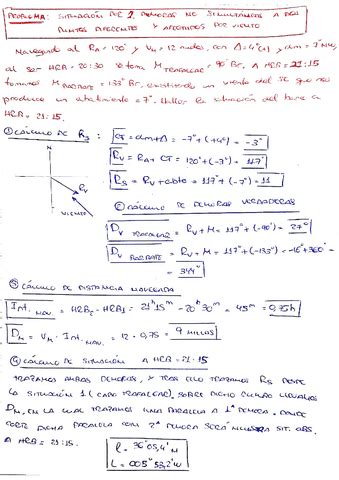 PROBLEMA: SITUACIÓN DE 2 DEMORAS NO SIMULTÁNEAS A DOS
PUNTOS DIFERENTES Y AFECTADOS POR VIENTO
Navegando al RA = 120° y VM = 12 nudos, con Δ = 4° (+) y dm = 7° NW,
al ser HRB = 20:30 se toma M TRAFALGAR = 90° Br. A HRB = 21:15
tomamos M = 133° Br, existiendo un viento del SE que nos
produce un abatimiento = 7°. Hallar la situación del barco a
HRB = 21:15.
① CÁLCULO DE RS :
CT = dm + Δ = -7° + (+4°) = -3°
N
RV = RA + CT = 120° + (-3°) = 117°
RS = RV + abto = 117° + (-7°) = 11
RV
VIENTO
② CÁLCULO DE DEMORAS VERDADERAS
DV TRAFALGAR = RV + M = 117° + (-90°) = 27°
DV = RV + M = 117° + (-133°) = -16° + 360° =
= 344°
③ CÁLCULO DE DISTANCIA NAVEGADA
Int. NAV. = HRB2 - HRB1 = 21h 15m - 20h 30m = 45m = 0,75h
DM = VM · Int. NAV. = 12 · 0,75 = 9 MILLAS
④ CÁLCULO DE SITUACIÓN A HRB = 21:15
TRAZAMOS AMBAS DEMORAS, Y TRAS ELLO TRAZAMOS RS DESDE
LA SITUACIÓN 1 (CABO TRAFALGAR). SOBRE DICHO RUMBO LLEVAMOS
DM, EN LA CUAL TRAZAMOS UNA PARALELA A 1ª DEMORA. DONDE
CORTE DICHA PARALELA CON 2ª DEMORA SERÁ NUESTRA SIT. OBS.
A HRB = 21:15.
l = 36° 05,4' N
L = 005° 53,2' W